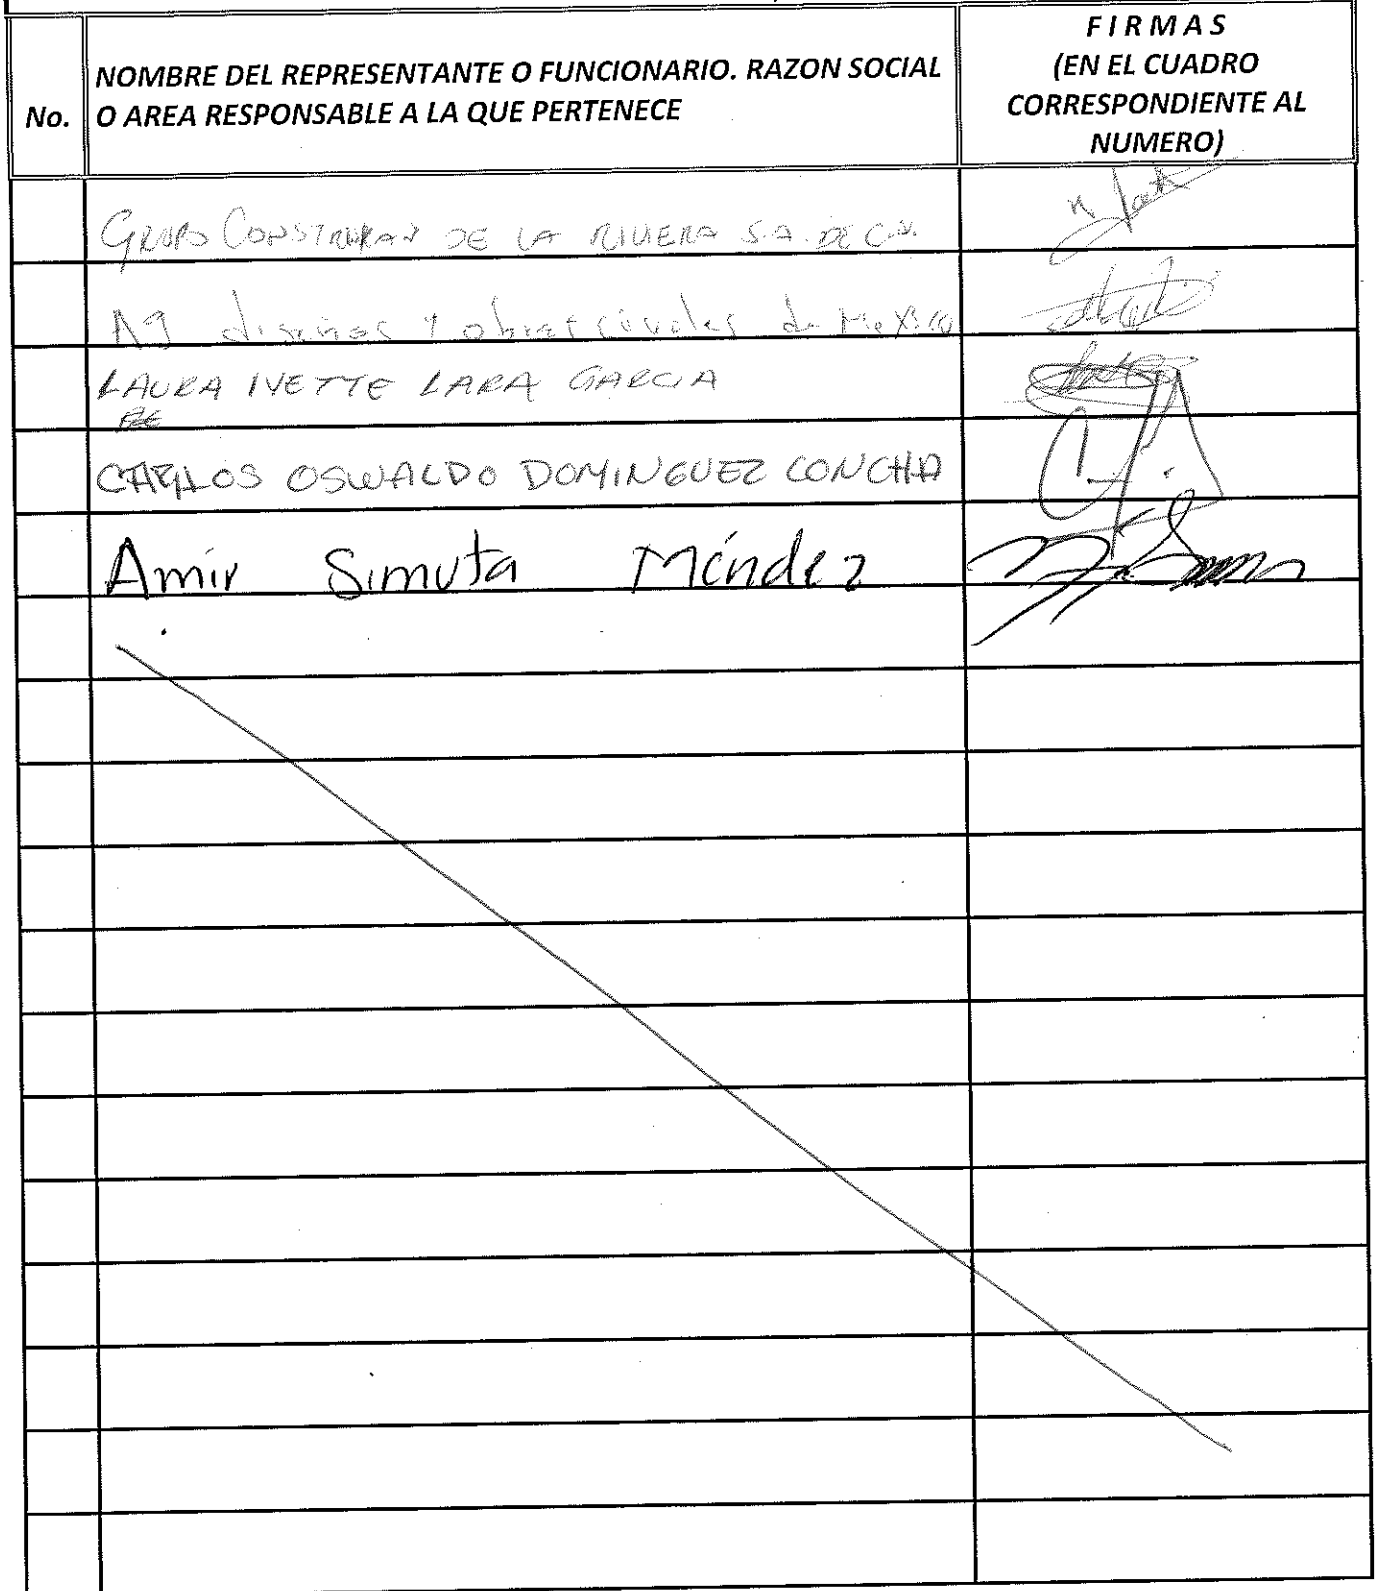 No.
NOMBRE DEL REPRESENTANTE O FUNCIONARIO. RAZON SOCIAL
O AREA RESPONSABLE A LA QUE PERTENECE
F I R M A S
(EN EL CUADRO
CORRESPONDIENTE AL
NUMERO)
GRUPO DE LA RIVIERA S.A. DE C.V.
diseños y obras civiles de Mexico
LAURA IVETTE LARA GARCIA
CARLOS OSWALDO DOMINGUEZ CONCHA
Amir Simuta Méndez